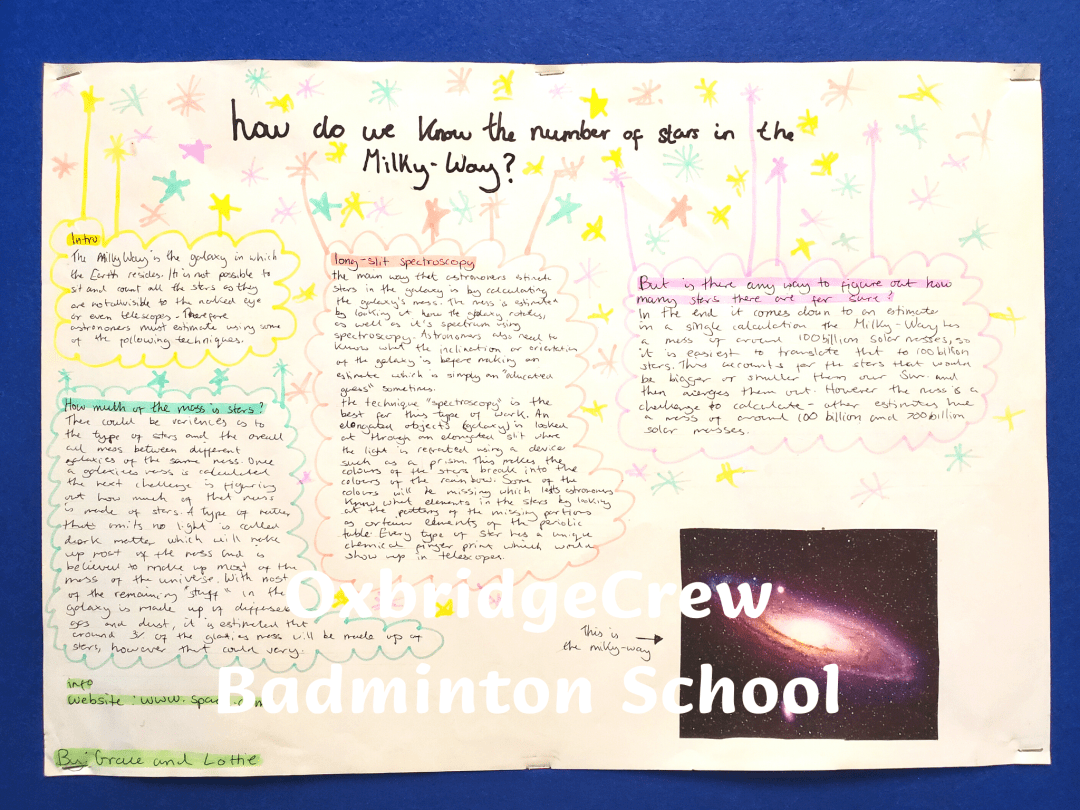 how do we know the number of stars in the
Milky-Way?
Intro
The Milky Way is the galaxy in which
the Earth resides. It is not possible to
sit and count all the stars as they
are not all visible to the naked eye
or even telescopes. Therefore
astronomers must estimate using some
of the following techniques.
How much of the mass is stars?
There could be variences as to
the type of stars and the overall
all mass between different
galaxies of the same mass. Once
a galaxies mass is calculated
the next challenge is figuring
out how much of that mass
is made of stars. A type of matter
that omits no light is called
dark matter which will make
up most of the mass and is
believed to make up most of the
mass of the universe. With most
of the remaining "stuff" in the
galaxy is made up of different
gas and dust, it is estimated that
around 3% of the galaxies mass will be made up of
stars, however that could vary.
info
website: www.
By: Grace and Lottie
long-slit spectroscopy
the main way that astronomers estimate
stars in the galaxy is by calculating
the galaxy's mass. The mass is estimated
by looking at how the galaxy rotates,
as well as it's spectrum using
spectroscopy. Astronomers also need to
know what the inclination or orientation
of the galaxy is before making an
estimate which is simply an "educated
guess" sometimes.
the technique "spectroscopy" is the
best for this type of work. An
elongated objects (galaxy) is looked
at through an elongated slit where
the light is refracted using a device
such as a prism. This makes the
colours of the stars break into the
colours of the rainbow. Some of the
colours will be missing which lets astronomers
know what elements in the stars by looking
at the pattern of the missing portions
as certain elements of the periodic
table. Every type of star has a unique
chemical finger print which would
show up in telescopes.
But is there any way to figure out how
many stars there are for sure?
In the end it comes down to an estimate
in a single calculation the Milky-Way has
a mass of around 100 billion solar masses, so
it is easiest to translate that to 100 billion
stars. This accounts for the stars that would
be bigger or smaller than our Sun and
then averages them out. However the mass is a
challenge to calculate - other estimates have
a mass of around 100 billion and 700 billion
solar masses.
This is
the milky-way
OxbridgeCrew
Badminton School